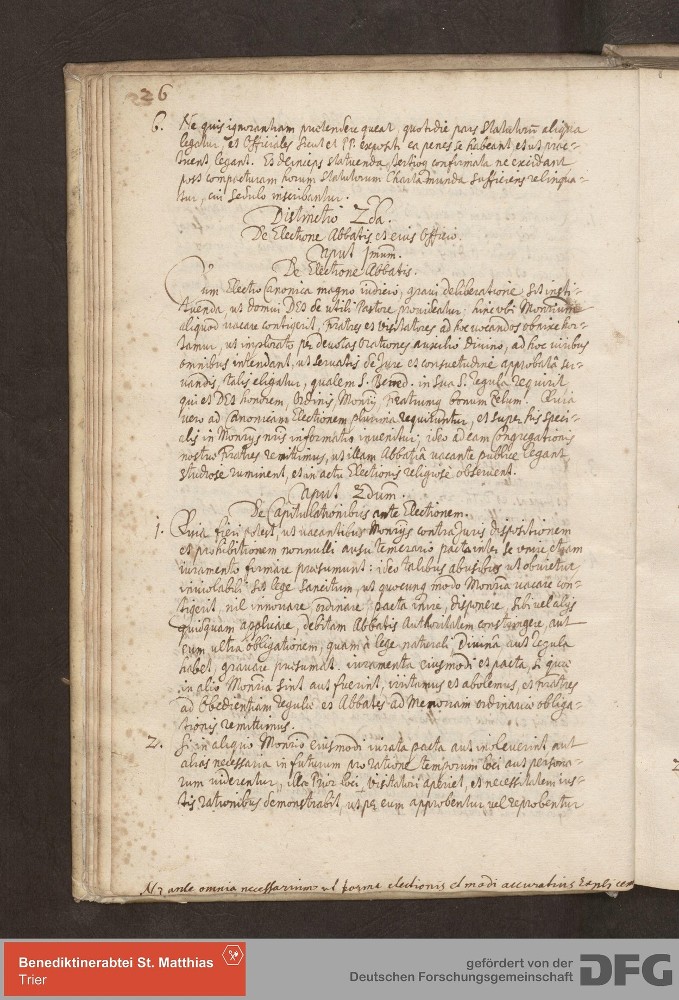 26
6. Ne quis ignorantiam praetendere queat, quotidie pars Statutorū aliqua
legatur, et Officiales sicut et PP. expositi ea penes se habeant et ut prae-
tinent legant. Et deinceps statuenda, tertioq confirmata ne excidant
post compacturam horum statutorum Charta munda sufficiens relinqua-
tur, cui sedulo inscribantur.
Distinctio 2da.
De Electione Abbatis et eius Officio.
Caput 1mum.
De Electione Abbatis.
Cum Electio Canonica magno iudicio, gravi deliberatione sit insti-
tuenda, ut domui DEI de utili Pastore provideatur, hinc ubi Monrium
aliquod vacare contigerit, Fratres et Visitatores ad hoc vocandos obnixe hor-
tamur, ut implorato per devotas orationes auxilio Divino, ad hoc viribus
omnibus intendant, ut servatis de Jure et consuetudine approbatâ ser-
vandis, talis eligatur, qualem S. Bened. in sua S. Regula requirit
qui et DEI honorem, Ordinis, Monrÿ Fratrumq bonum zelum. Quia
vero ad Canonicam Electionem plurima requiruntur, et super his speci-
alis in Monrÿs nris informatio invenitur; ideo ad eam Congregationis
nostrae Fratres remittimus, ut illam Abbatiâ vacante publice legant
studiose ruminent, et in actu Electionis religiosè observent.
Caput 2dum.
De Capitulationibus ante Electionem.
1. Quia fieri potest, ut vacantibus Monrÿs contra Juris dispositionem
et prohibitionem nonnulli ausu temerario pacta inter se unire etiam
iuramento firmare praesumunt: ideo talibus abusibus ut obvietur
inviolabili sit lege sancitum, ut quocunq modo Monria vacare con-
tigerit, nil innovare, ordinare, pacta inire, disponere, sibi vel alÿs
quidquam applicare, debitam Abbatis Authoritatem constringere, aut
eum ultra obligationem, quam à lege naturali, Divinâ aut Regula
habet, gravare praesumat. iuramenta eiusmodi et pacta, si quae
in alio Monria sint aut fuerint, irritamus et abolemus, et Fratres
ad Obedientiam Regulae et Abbates ad Memoriam ordinariae obliga-
tionis remittimus.
2. Si in aliquo Monrio eiusmodi iurata pacta aut inoleverint aut
alias necessaria in futurum pro ratione temporum loci aut persona-
rum viderentur, illa Prior loci Visitatori aperiet, et necessitatem ius-
tis rationibus demonstrabit, ut per eum approbentur vel reprobentur
ante omnia necessarium ut forma electionis et modi accuratius
Benediktinerabtei St. Matthias
Trier
gefördert von der
Deutschen Forschungsgemeinschaft
DFG